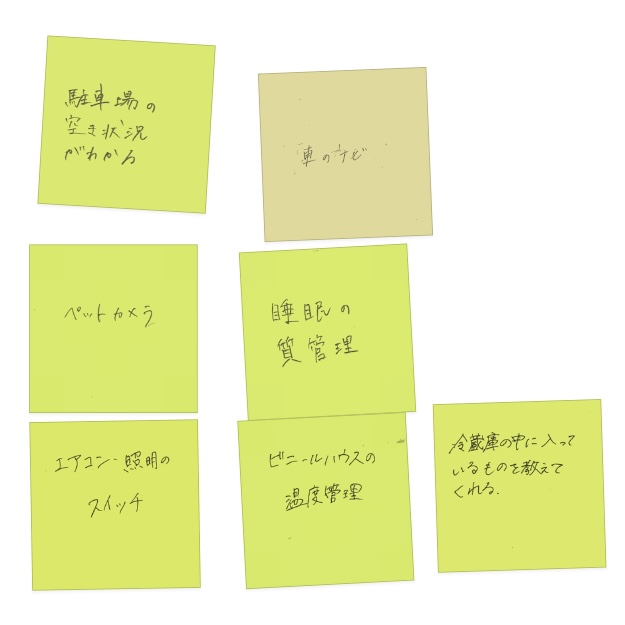 駐車場の
空き状況
がわかる
車のナビ
ペットカメラ
睡眠の
質管理
エアコン・照明の
スイッチ
ビニールハウスの
温度管理
冷蔵庫の中に入って
いるものを教えて
くれる.